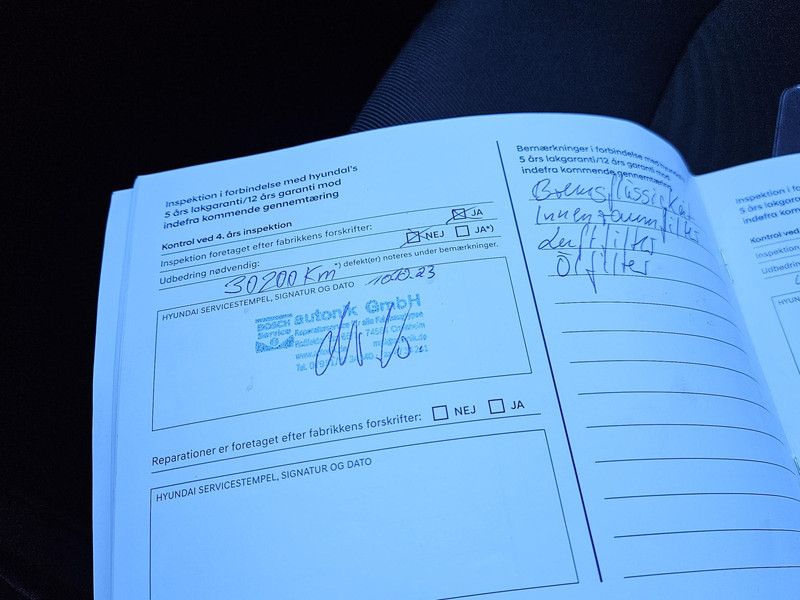 Inspektion i forbindelse med hyundai's
5 års lakgaranti/12 års garanti mod
indefra kommende gennemtæring
Kontrol ved 4. års inspektion
Inspektion foretaget efter fabrikkens forskrifter: JA
Udbedring nødvendig: NEJ JA*)
30200 Km *) defekt(er) noteres under bemærkninger.
HYUNDAI SERVICESTEMPEL, SIGNATUR OG DATO
BOSCH Service autonik GmbH
Reparationer er foretaget efter fabrikkens forskrifter: NEJ JA
HYUNDAI SERVICESTEMPEL, SIGNATUR OG DATO
Bemærkninger i forbindelse med hyundai's
5 års lakgaranti/12 års garanti mod
indefra kommende gennemtæring
Bremsflüssigkeit
Innenraumfilter
Luftfilter
Ölfilter
Inspektion i
5 års lakga
indefra ko
Kontrol ved
Inspektion
Udbedring